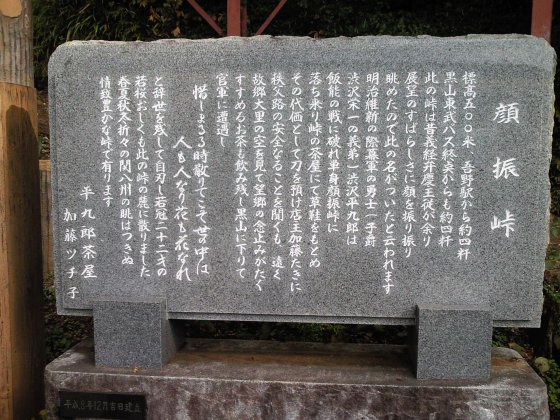 顔振峠
標高五〇〇米、吾野駅から約四粁
黒山東武バス終奌からも約四粁
此の峠は昔義経弁慶主従が余り
展望のすばらしさに顔を振り振り
眺めたので此の名がついたと云われます
明治維新の際幕軍の勇士一子爵
渋沢栄一の義弟一渋沢平九郎は
飯能の戦に破れ単身顔振峠に
落ち来り峠の茶屋にて草鞋をもとめ
その代価として刀を預け店主加藤たきに
秩父路の安全なることを聞くも、遠く
故郷大里の空を見て望郷の念止みがたく
すすめるお茶も飲み残し黒山に下りて
官軍に遭遇し
惜しまるる時散りてこそ世の中は
人も人なり花も花なれ
と辞世を残して自刃し若冠二十二才の
若桜おしくも此の峠の麓に散りました
春夏秋冬折々の関八州の眺はつきぬ
情緒豊かな峠で有ります
平九郎茶屋
加藤ツチ子
平成8年12月吉日建立